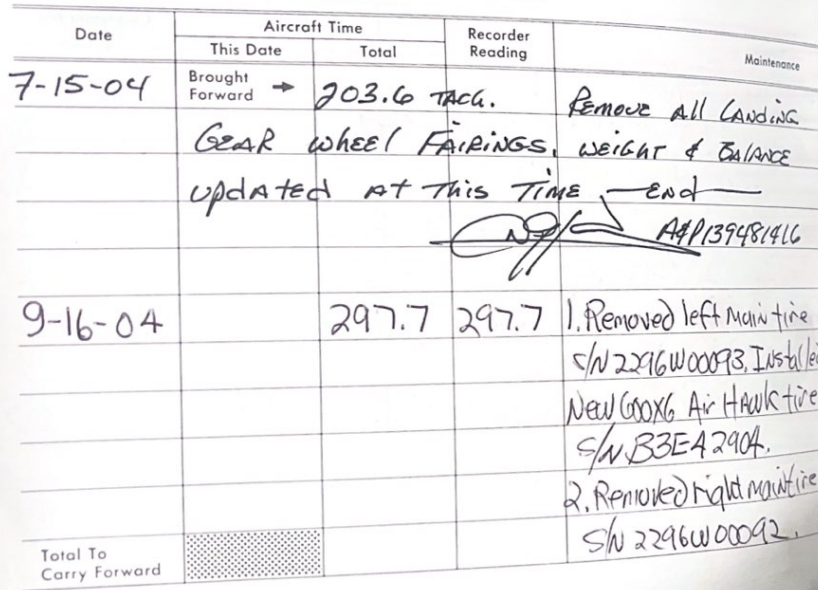 Date Aircraft Time Recorder Reading Maintenance
This Date Total
7-15-04 Brought Forward → 203.6 TACH. Remove All Landing
Gear wheel Fairings. weight & Balance
updated At This Time —End—
A&P139481416
9-16-04 297.7 297.7 1. Removed left main tire
S/N 2296W00093. Installed
New 600X6 Air Hawk tire
S/N B3E42904.
2. Removed right main tire
S/N 2296W00092.
Total To
Carry Forward